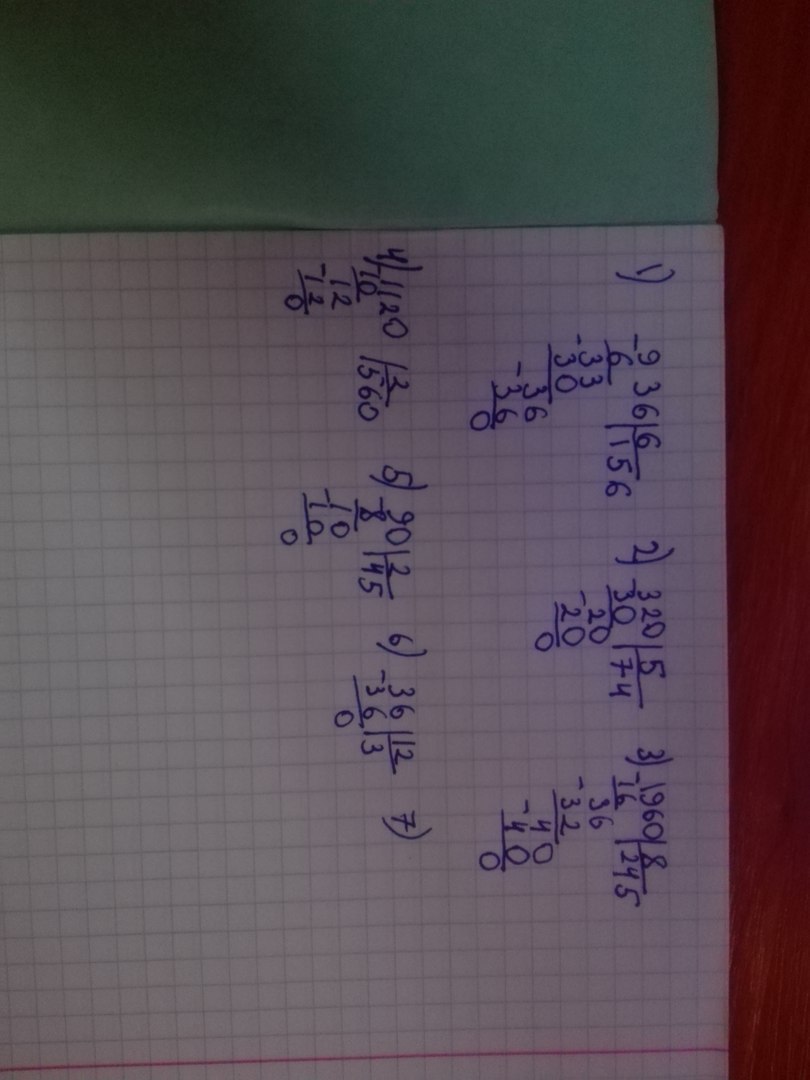 1) -9 36 | 6   2) -320 | 5   3) -1960 | 8
6 | 156   30 | 74   16 | 245
-33   -20   36
30   20   -32
36   0   40
-36   -40
0   0
4) 1120 | 2   5) -90 | 2   6) -36 | 12   7)
10 | 560   8 | 45   36 | 3
12   -10   0
-12   10
0   0